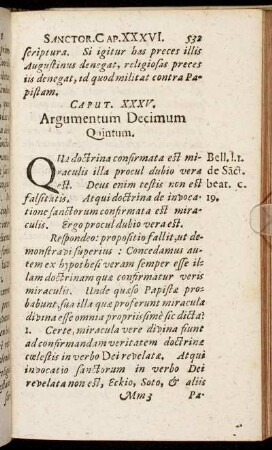 SANCTOR. CAP. XXXVI. 532
scriptura. Si igitur has preces illis
Augustinus denegat, religiosas preces
iis denegat, id quod militat contra Pa-
pistam.
CAPUT. XXXV.
Argumentum Decimum
Quintum.
QUa doctrina confirmata est mi-
raculis illa procul dubio vera
est. Deus enim testis non est
falsitatis. Atqui doctrina de invoca-
tione sanctorum confirmata est mira-
culis. Ergo procul dubio vera est.
Bell. l. 1.
de Sāct.
beat. c.
19.
Respondeo: propositio fallit, ut de-
monstravi superius: Concedamus au-
tem ex hypothesi veram semper esse il-
lam doctrinam quæ confirmatur veris
miraculis. Unde quæso Papistæ pro-
babunt, sua illa quæ proferunt miracula
divina esse omnia propriissimè sic dicta?
1. Certe, miracula vere divina fiunt
ad confirmandam veritatem doctrinæ
cœlestis in verbo Dei revelatæ. Atqui
invocatio sanctorum in verbo Dei
revelata non est, Eckio, Soto, & aliis
Mm 3 Pa-